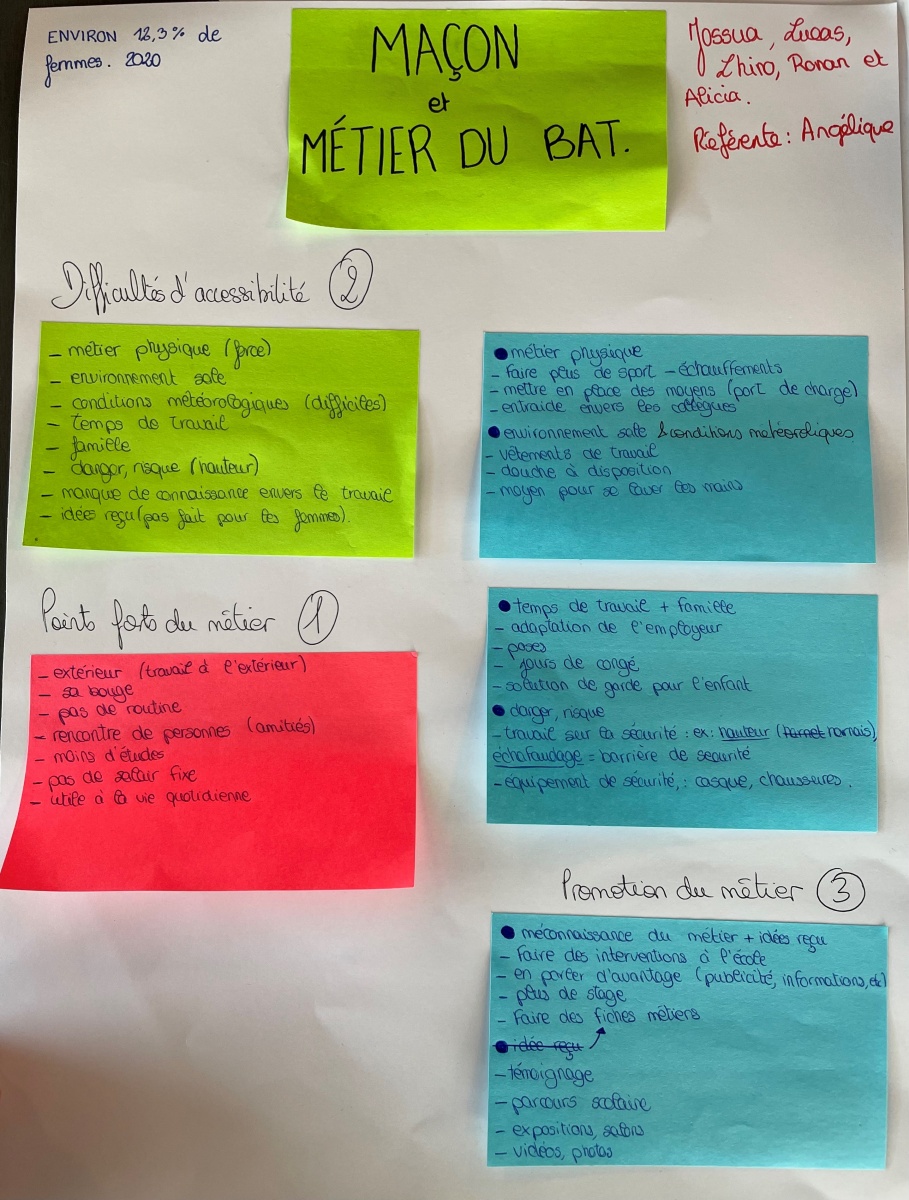 ENVIRON 12,3% de
femmes. 2020
MAÇON
et
MÉTIER DU BAT.
Jossua, Lucas,
Zhiro, Ronan et
Alicia.
Référente : Angélique
Difficultés d'accessibilité 2
- métier physique (force)
- environnement sale
- conditions météorologiques (difficiles)
- temps de travail
- famille
- danger, risque (hauteur)
- manque de connaissance envers le travail
- idées reçu (pas fait pour les femmes).
● métier physique
- faire plus de sport - échauffements
- mettre en place des moyens (port de charge)
- entraide envers les collègues
● environnement sale & conditions météoroliques
- vêtements de travail
- douche à disposition
- moyen pour se laver les mains
Points forts du métier 1
- extérieur (travail à l'extérieur)
- sa bouge
- pas de routine
- rencontre de personnes (amitiés)
- moins d'études
- pas de salair fixe
- utile à la vie quotidienne
● temps de travail + famille
- adaptation de l'employeur
- poses
- jours de congé
- solution de garde pour l'enfant
● danger, risque
- travail sur la sécurité : ex: hauteur (harnet harnais),
échafaudage = barrière de securité
- equipement de sécurité, : casque, chaussures.
Promotion du métier 3
● méconnaissance du métier + idées reçu
- Faire des interventions à l'école
- en parler d'avantage (publicité, informations, etc)
- plus de stage
- Faire des fiches métiers
● idée reçu
- témoignage
- parcours scolaire
- expositions, salons
- vidéos, photos